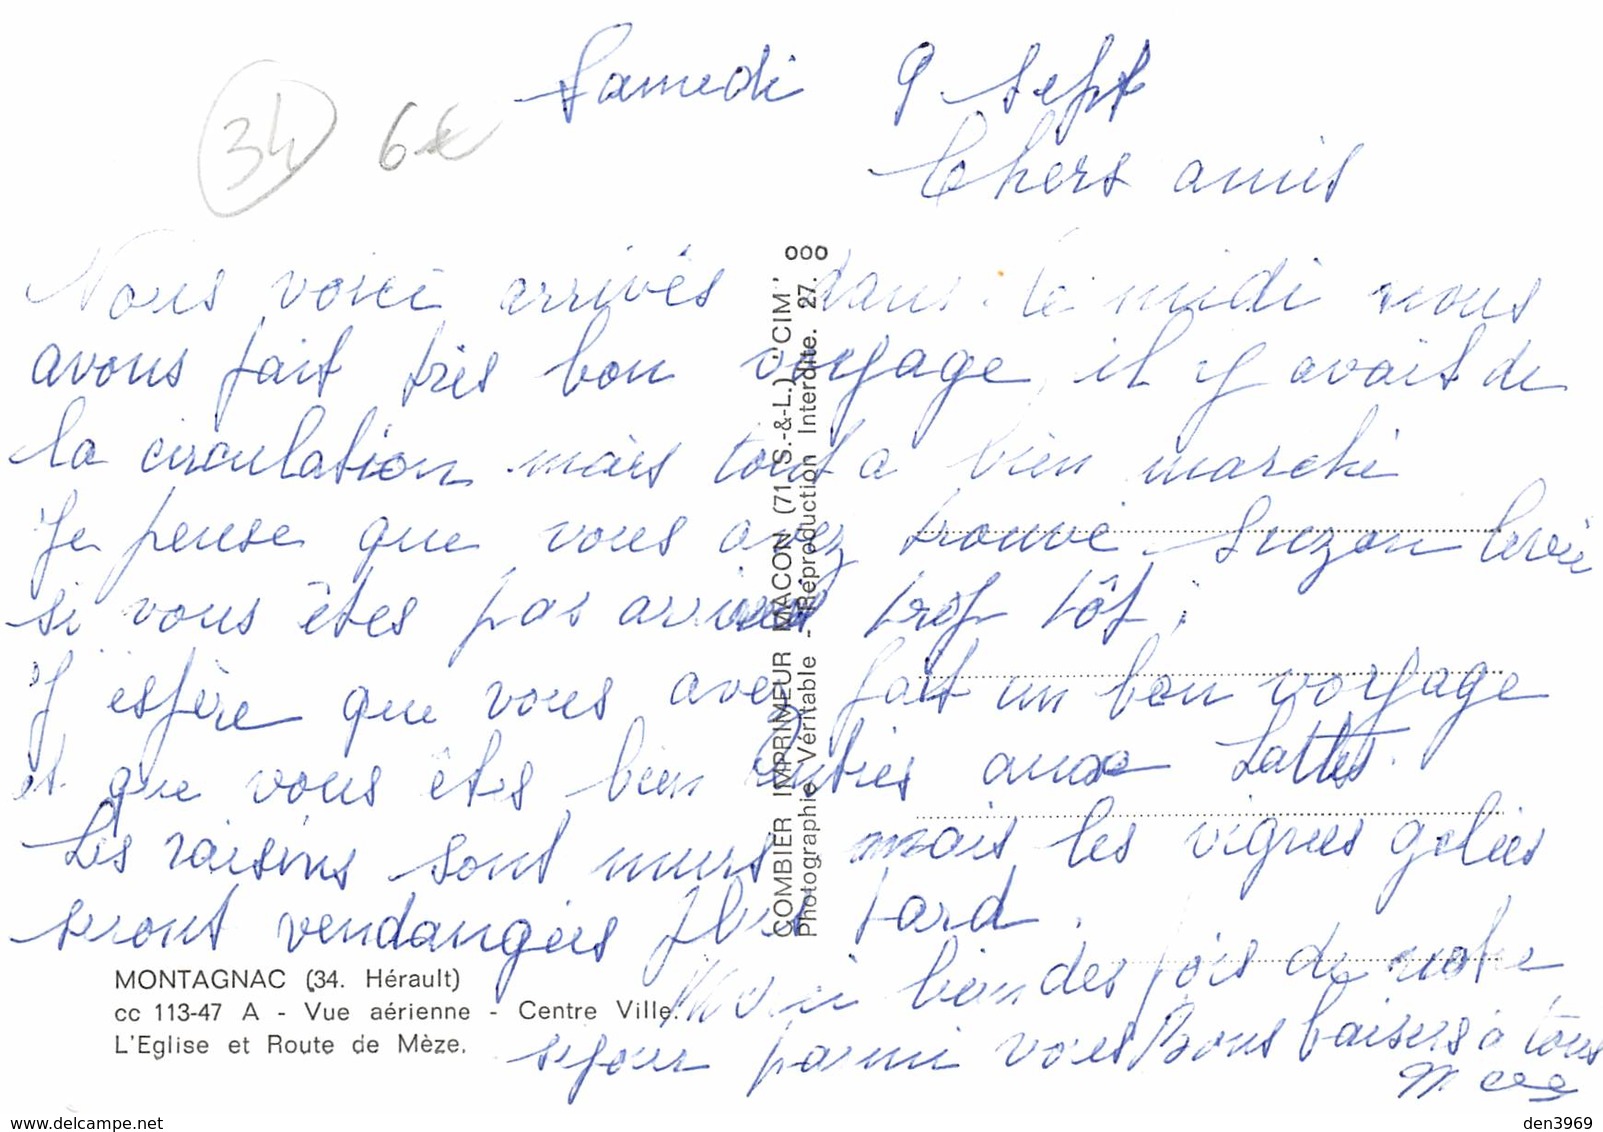 Samedi 9 Sept
34 6€
Chers amis
Nous voici arrivés dans le midi nous
avons fait très bon voyage, il y avait de
la circulation mais tout a bien marché
Je pense que vous avez trouvé Suzon levée
si vous êtes pas arrivés trop tôt,
J'espère que vous avez fait un bon voyage
et que vous êtes bien rentrés aux Lattes.
Les raisins sont murs mais les vignes gelées
seront vendangées plus tard.
Merci bien des fois de notre
séjour parmi vous Bons baisers à tous
COMBIER IMPRIMEUR MACON (71 S.-&-L.) "CIM"
Photographie Véritable - Reproduction Interdite. 27. ooo
MONTAGNAC (34. Hérault)
cc 113-47 A - Vue aérienne - Centre Ville.
L'Eglise et Route de Mèze.
www.delcampe.net
den3969